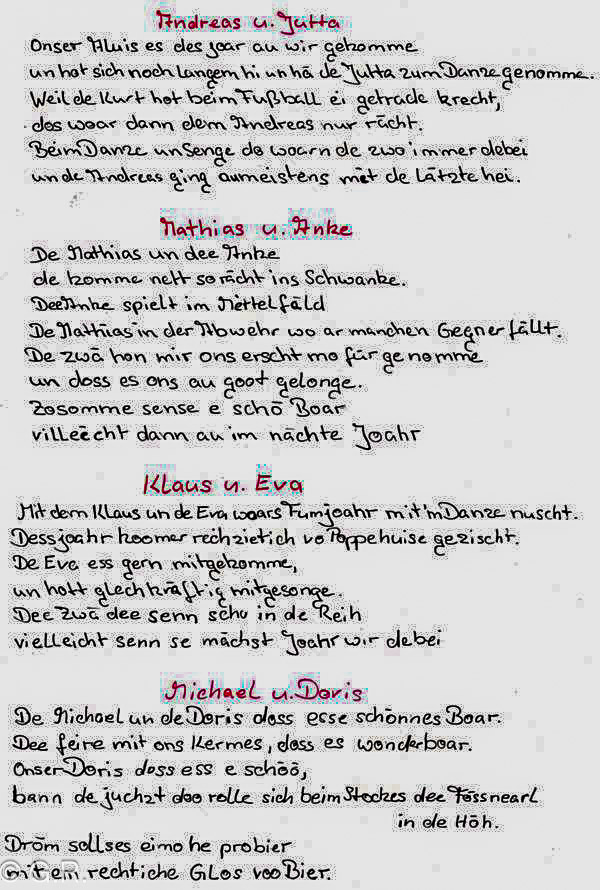 Andreas u. Jutta
Onser Aluis es des Joar au wir gekomme
un hot sich noch langem hi un hä de Jutta zum Danze genomme.
Weil de Kurt hot beim Fußball ei getrade krecht,
dos woar dann dem Andreas nur rächt.
Beim Danze un Senge do woarn de zwo immer debei
un de Andreas ging aumeistens mēt de Lätzte hei.
Mathias u. Anke
De Mathias un dee Anke
de komme nett so rächt ins Schwanke.
Dee Anke spielt im Mettelfäld
De Mathias in der Abwehr wo ar manchen Gegner fällt.
De zwä hon mir ons erscht mo für genomme
un doss es ons au goot gelonge.
Zosomme sense e schö Boar
villeecht dann au im nächte Joahr
Klaus u. Eva
Mit dem Klaus un de Eva woars Fumjoahr mit'm Danze nuscht.
Dessjoahr koomer rechzietich vo Poppehuise gezischt.
De Eva ess gern mitgekomme,
un hott glech kräftig mitgesonge.
Dee zwä dee senn scho in de Reih
vielleicht senn se mächst Joahr wir debei
Michael u. Doris
De Michael un de Doris doss esse schönnes Boar.
Dee feire mit ons Kermes, doss es wonderboar.
Onser Doris doss ess e schöö,
bann de juchzt doo rolle sich beim Stockes dee Fössnearl
in de Höh.
Dröm sollses eimo he probier
mit em rechtiche Glos voo Bier.
© G.R.